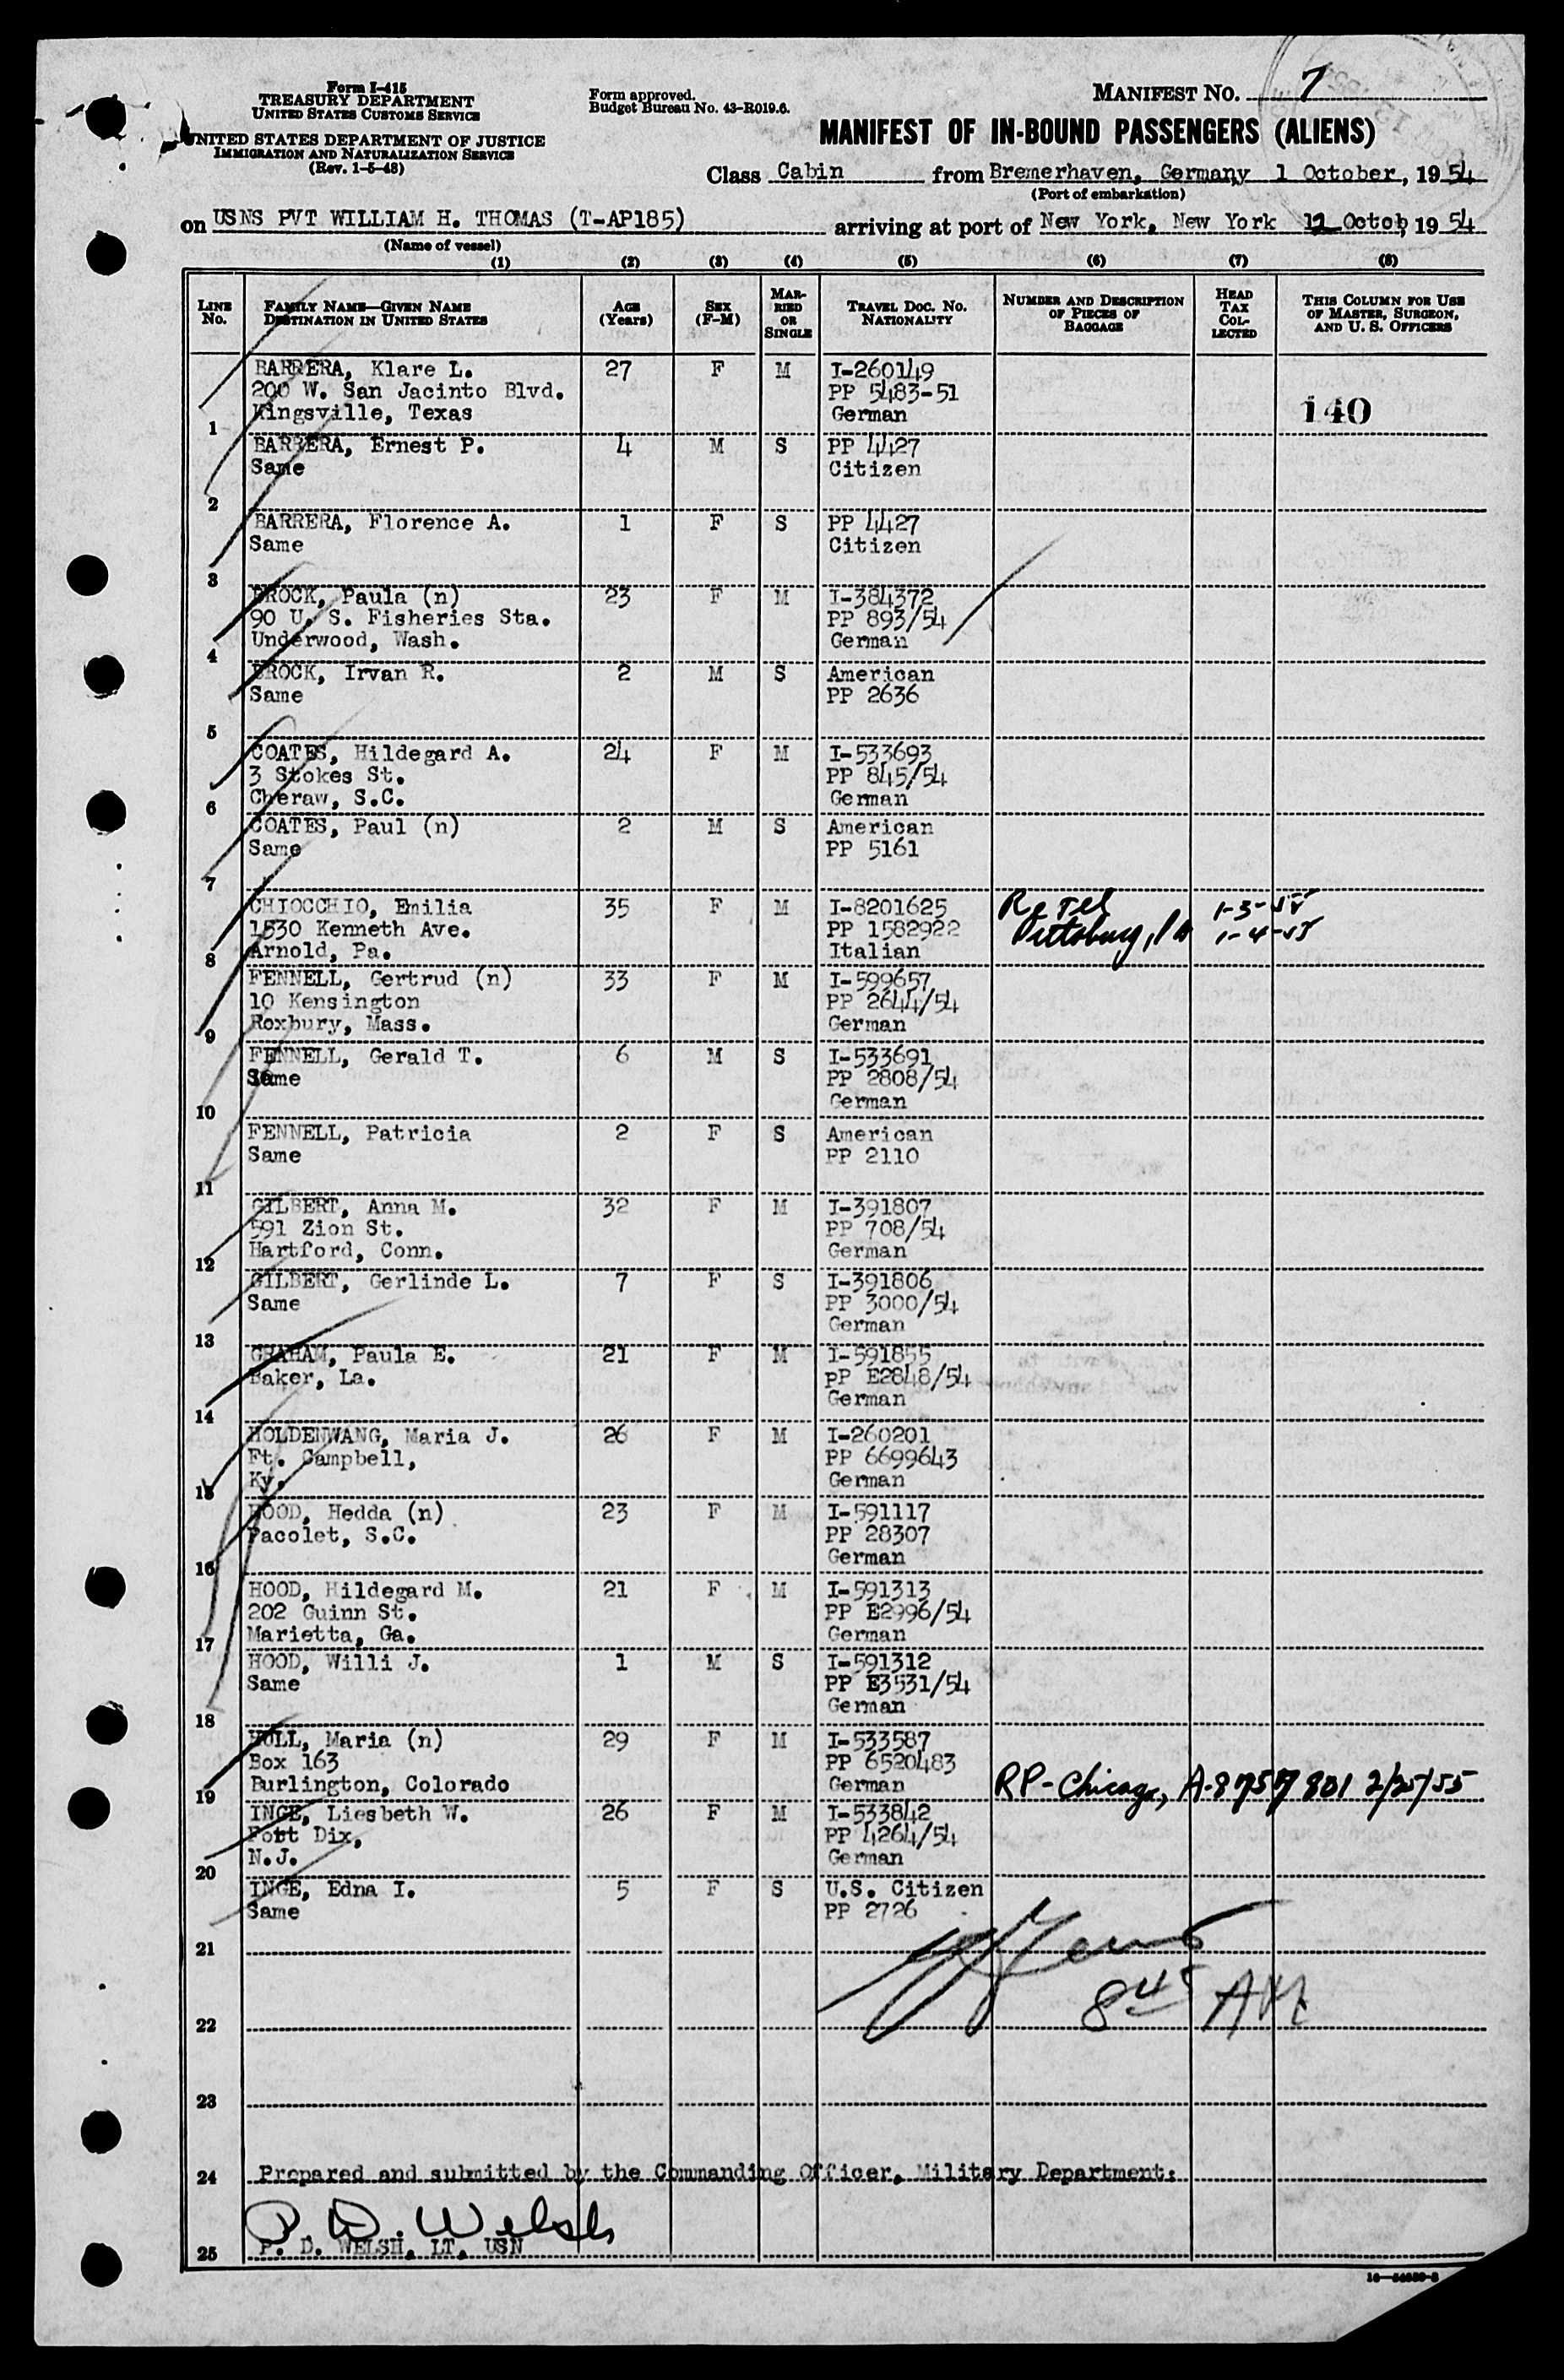 Form I-415
TREASURY DEPARTMENT
UNITED STATES CUSTOMS SERVICE
UNITED STATES DEPARTMENT OF JUSTICE
IMMIGRATION AND NATURALIZATION SERVICE
(Rev. 1-5-48)
Form approved.
Budget Bureau No. 43-R019.6.
MANIFEST NO. 7
MANIFEST OF IN-BOUND PASSENGERS (ALIENS)
Class Cabin from Bremerhaven, Germany 1 October, 1954
(Port of embarkation)
on USNS PVT WILLIAM H. THOMAS (T-AP185) arriving at port of New York, New York 12 Octob, 1954
(Name of vessel)
(1) (2) (3) (4) (5) (6) (7) (8)
LINE No. FAMILY NAME—GIVEN NAME DESTINATION IN UNITED STATES AGE (Years) SEX (F-M) MARRIED OR SINGLE TRAVEL DOC. NO. NATIONALITY NUMBER AND DESCRIPTION OF PIECES OF BAGGAGE HEAD TAX COLLECTED THIS COLUMN FOR USE OF MASTER, SURGEON, AND U. S. OFFICERS
BARRERA, Klare L. 27 F M I-260149
200 W. San Jacinto Blvd. PP 5483-51
Kingsville, Texas German 140
1
BARRERA, Ernest P. 4 M S PP 4427
Same Citizen
2
BARRERA, Florence A. 1 F S PP 4427
Same Citizen
3
BROCK, Paula (n) 23 F M I-384372
90 U. S. Fisheries Sta. PP 893/54
Underwood, Wash. German
4
BROCK, Irvan R. 2 M S American
Same PP 2636
5
COATES, Hildegard A. 24 F M I-533693
3 Stokes St. PP 845/54
Cheraw, S.C. German
6
COATES, Paul (n) 2 M S American
Same PP 5161
7
CHIOCCHIO, Emilia 35 F M I-8201625 1-3-55
1530 Kenneth Ave. PP 1582922 Pittsburg, Pa 1-4-55
Arnold, Pa. Italian
8
FENNELL, Gertrud (n) 33 F M I-599657
10 Kensington PP 2644/54
Roxbury, Mass. German
9
FENNELL, Gerald T. 6 M S I-533691
Same PP 2808/54
German
10
FENNELL, Patricia 2 F S American
Same PP 2110
11
GILBERT, Anna M. 32 F M I-391807
591 Zion St. PP 708/54
Hartford, Conn. German
12
GILBERT, Gerlinde L. 7 F S I-391806
Same PP 3000/54
German
13
GRAHAM, Paula E. 21 F M I-591855
Baker, La. PP E2848/54
German
14
HOLDENWANG, Maria J. 26 F M I-260201
Ft. Campbell, PP 6699643
Ky. German
15
HOOD, Hedda (n) 23 F M I-591117
Pacolet, S.C. PP 28307
German
16
HOOD, Hildegard M. 21 F M I-591313
202 Guinn St. PP E2996/54
Marietta, Ga. German
17
HOOD, Willi J. 1 M S I-591312
Same PP E3531/54
German
18
HULL, Maria (n) 29 F M I-533587
Box 163 PP 6520483
Burlington, Colorado German RP-Chicago, A-8757801 2/25/55
19
INGE, Liesbeth W. 26 F M I-533842
Fott Dix, PP 4264/54
N.J. German
20
INGE, Edna I. 5 F S U.S. Citizen
Same PP 2726
21
8 45 AM
22
23
24 Prepared and submitted by the Commanding Officer, Military Department:
P. D. Welsh
25 P. D. WELSH, LT, USN